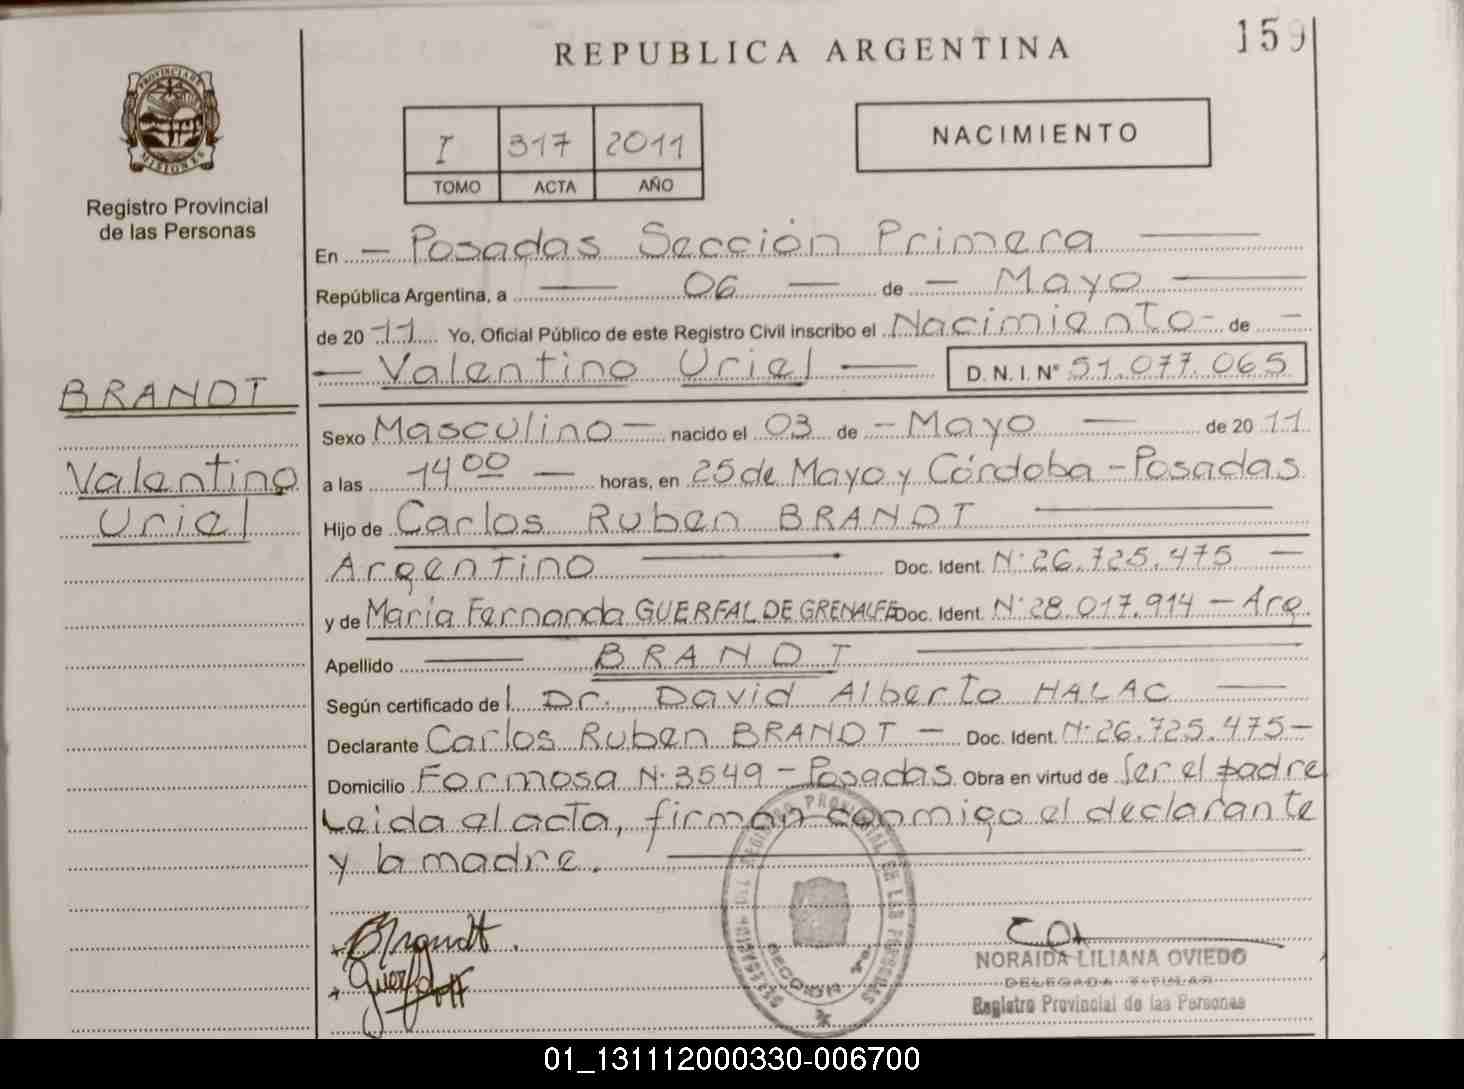 159
REPUBLICA ARGENTINA
PROVINCIA DE MISIONES
Registro Provincial
de las Personas
I 317 2011
TOMO ACTA AÑO
NACIMIENTO
En — Posadas Sección Primera —
República Argentina, a — 06 — de — Mayo —
de 20 11 Yo, Oficial Público de este Registro Civil inscribo el Nacimiento - de —
— Valentino Uriel — D. N. I. N° 51.077.065
BRANDT
Valentino
Uriel
Sexo Masculino — nacido el 03 de — Mayo — de 20 11
a las 14 00 — horas, en 25 de Mayo y Córdoba - Posadas
Hijo de Carlos Ruben BRANDT —
Argentino — Doc. Ident. N° 26.725.475 —
y de María Fernanda GUERFAL DE GRENALFE Doc. Ident. N° 28.017.914 — Arg.
Apellido — BRANDT —
Según certificado de l Dr. David Alberto HALAC —
Declarante Carlos Ruben BRANDT — Doc. Ident. N° 26.725.475 —
Domicilio Formosa N° 3549 - Posadas Obra en virtud de ser el padre
Leida el acta, firman conmigo el declarante
y la madre. —
REGISTRO PROVINCIAL DE LAS PERSONAS
SECCION 1ra
NORAIDA LILIANA OVIEDO
DELEGADA TITULAR
Registro Provincial de las Personas
01_131112000330-006700